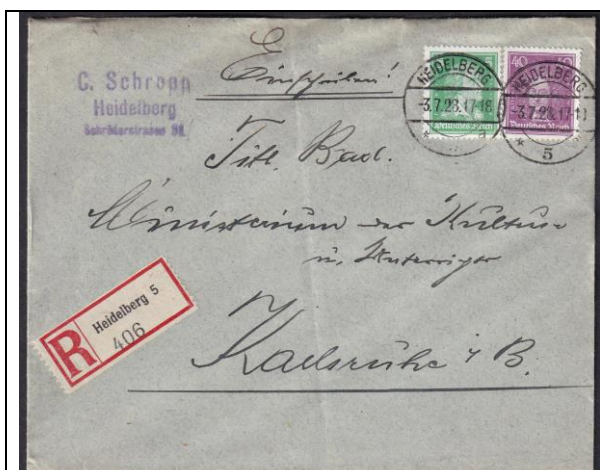 C. Schropp
Heidelberg
Schröderstrasse
Einschreiben!
40
HEIDELBERG
-3.7.28.17-18
Deutsches Reich
HEIDELBERG
-3.7.28.17-18
Deutsches Reich
5
Titl. Bad.
Ministerium des Kultus-
u. Unterrichts
Karlsruhe i B.
R
Heidelberg 5
406